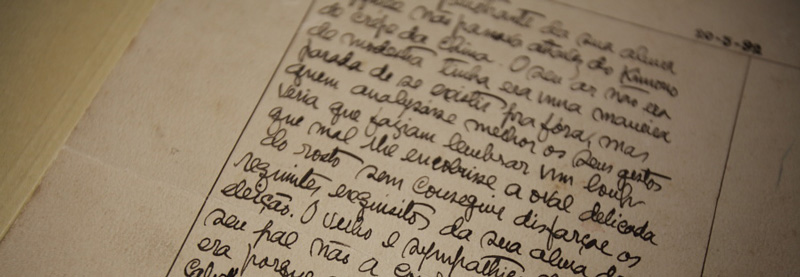 20-3-92
da sua alma
não passado através do Kimono
de crepe da China. O seu ar não era
de modestia tinha era uma maneira
parada de se existir pra fóra, mas
quem analysasse melhor os seus gestos
veria que faziam lembrar um loup
que mal lhe encobrisse a oval delicada
do rosto sem conseguir disfarçar os
requintes exquisitos da sua alma de
eleição. O velho e sympathico
seu pae não a
era porque